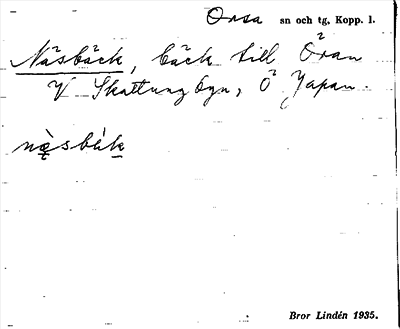 Orsa sn och tg, Kopp. l.
Näsbäck, bäck till Öran
V Skattungbyn, Ö Yapan.
Bror Lindén 1935.